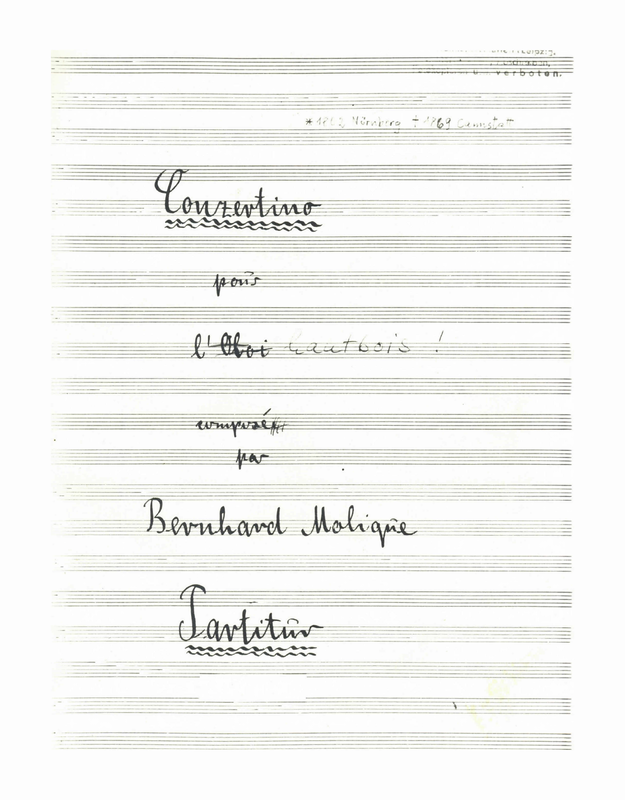 verboten.
*1802 Nürnberg † 1869 Cannstatt
Conzertino
pour
l'Oboi hautbois !
composé
par
Bernhard Molique
Partitur